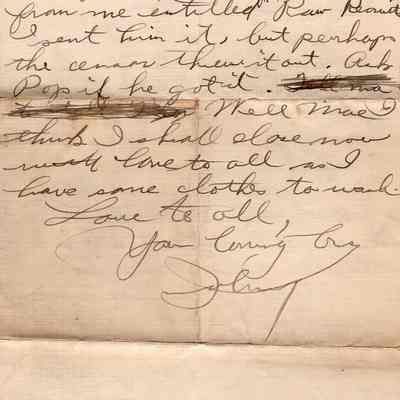 from me entitled "Raw Recruit
I sent him it, but perhaps
the censor threw it out. Ask
Pop if he got it.
Well Mae I
think I shall close now
with love to all as I
have some clothes to wash.
Love to all,
Your loving boy
Johny